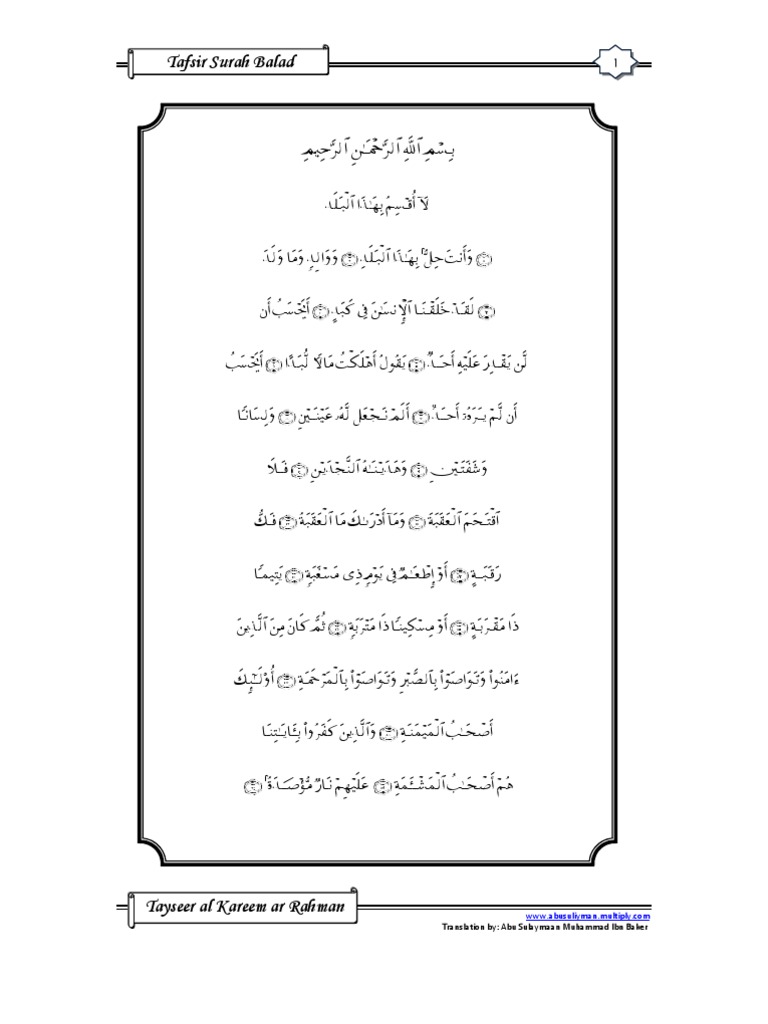 Tafsir Surah Balad
1
بِسۡمِ ٱللَّهِ ٱلرَّحۡمَـٰنِ ٱلرَّحِيمِ
لَآ أُقۡسِمُ بِهَـٰذَا ٱلۡبَلَدِ
۝ وَأَنتَ حِلُّۢ بِهَـٰذَا ٱلۡبَلَدِ ۝ وَوَالِدٍ۬ وَمَا وَلَدَ
۝ لَقَدۡ خَلَقۡنَا ٱلۡإِنسَـٰنَ فِى كَبَدٍ ۝ أَيَحۡسَبُ أَن
لَّن يَقۡدِرَ عَلَيۡهِ أَحَدٌ۬ ۝ يَقُولُ أَهۡلَكۡتُ مَالاً۬ لُّبَدًا ۝ أَيَحۡسَبُ
أَن لَّمۡ يَرَهُ ۥۤ أَحَدٌ ۝ أَلَمۡ نَجۡعَل لَّهُ ۥ عَيۡنَيۡنِ ۝ وَلِسَانً۬ا
وَشَفَتَيۡنِ ۝ وَهَدَيۡنَـٰهُ ٱلنَّجۡدَيۡنِ ۝ فَلَا
ٱقۡتَحَمَ ٱلۡعَقَبَةَ ۝ وَمَآ أَدۡرَٮٰكَ مَا ٱلۡعَقَبَةُ ۝ فَكُّ
رَقَبَةٍ ۝ أَوۡ إِطۡعَـٰمٌ۬ فِى يَوۡمٍ۬ ذِى مَسۡغَبَةٍ۬ ۝ يَتِيمً۬ا
ذَا مَقۡرَبَةٍ ۝ أَوۡ مِسۡكِينً۬ا ذَا مَتۡرَبَةٍ۬ ۝ ثُمَّ كَانَ مِنَ ٱلَّذِينَ
ءَامَنُواْ وَتَوَاصَوۡاْ بِٱلصَّبۡرِ وَتَوَاصَوۡاْ بِٱلۡمَرۡحَمَةِ ۝ أُوْلَـٰٓٮِٕكَ
أَصۡحَـٰبُ ٱلۡمَيۡمَنَةِ ۝ وَٱلَّذِينَ كَفَرُواْ بِـَٔايَـٰتِنَا
هُمۡ أَصۡحَـٰبُ ٱلۡمَشۡـَٔمَةِ ۝ عَلَيۡہِمۡ نَارٌ۬ مُّؤۡصَدَةُۢ ۝
Tayseer al Kareem ar Rahman
www.abusuliyman.multiply.com
Translation by: Abu Sulaymaan Muhammad Ibn Baker